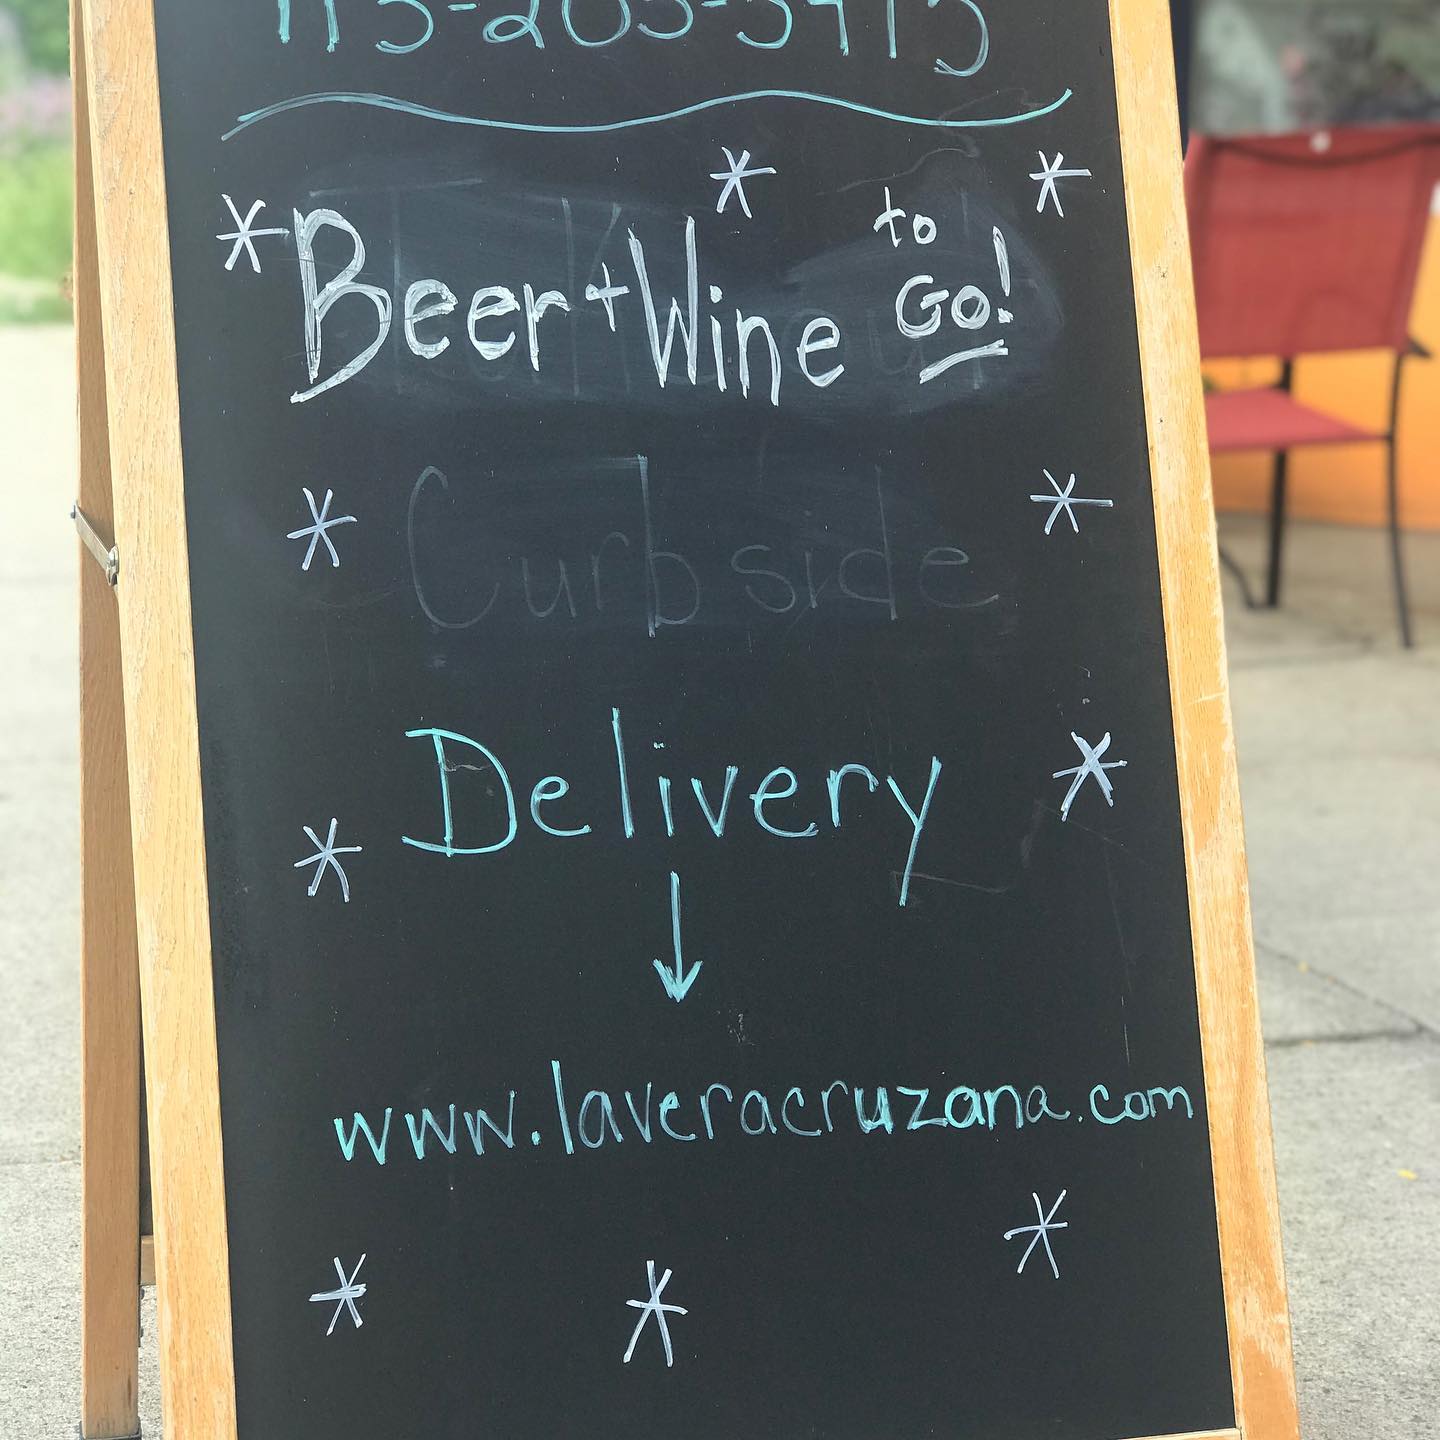 * Beer + Wine to Go!
Curbside
Delivery
↓
www.laveracruzana.com